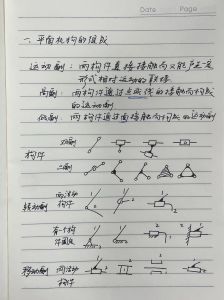 Date Page
一、平面机构的组成
运动副：两构件直接接触而又能产生一定
形式相对运动的联接
高副：两构件通过点或线的接触而构成
的运动副
低副：两构件通过面接触而构成的运动副
构件
二副
转动副
两活动
构件
1
2
有一个构
件固定
移动副
两活动
构件